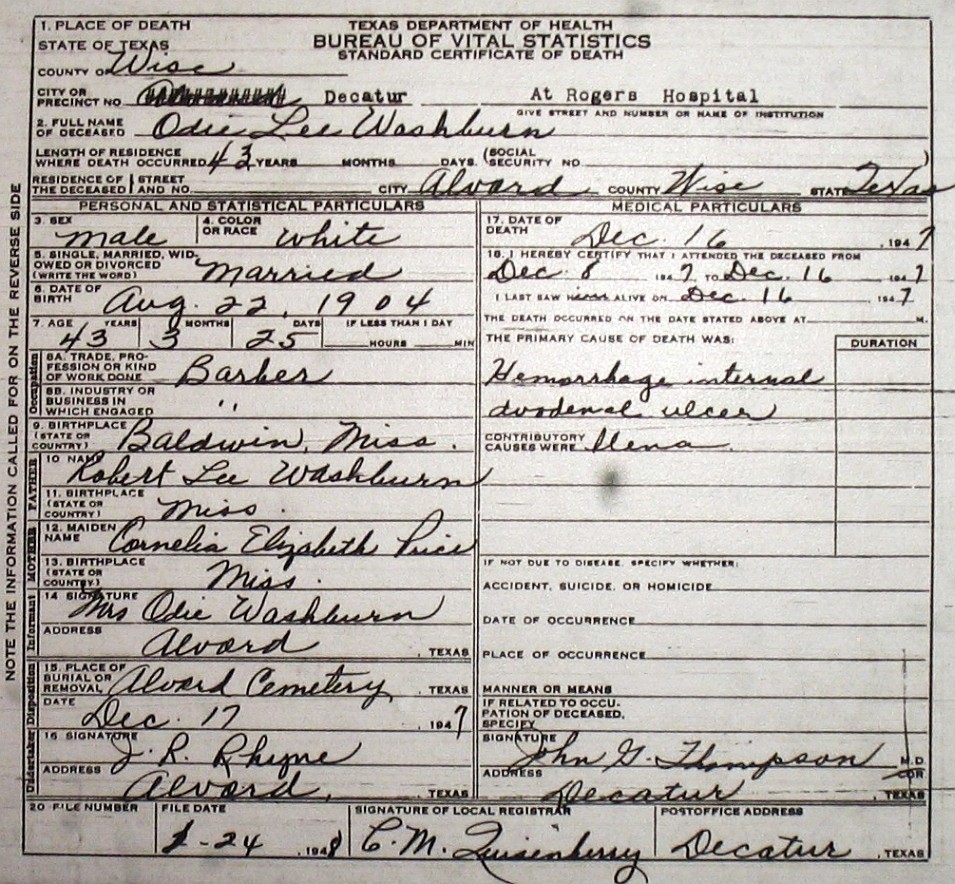 1. PLACE OF DEATH
TEXAS DEPARTMENT OF HEALTH
BUREAU OF VITAL STATISTICS
STANDARD CERTIFICATE OF DEATH
STATE OF TEXAS
COUNTY OF Wise
CITY OR PRECINCT NO. Decatur At Rogers Hospital
GIVE STREET AND NUMBER OR NAME OF INSTITUTION
2. FULL NAME OF DECEASED Odie Lee Washburn
LENGTH OF RESIDENCE WHERE DEATH OCCURRED 43 YEARS MONTHS DAYS. (SOCIAL SECURITY NO )
RESIDENCE OF THE DECEASED STREET AND NO. CITY Alvord COUNTY Wise STATE Texas
PERSONAL AND STATISTICAL PARTICULARS
3. SEX male 4. COLOR OR RACE White
5. SINGLE, MARRIED, WIDOWED OR DIVORCED (WRITE THE WORD) Married
6. DATE OF BIRTH Aug. 22, 1904
7. AGE YEARS MONTHS DAYS IF LESS THAN 1 DAY
43 3 25 HOURS MIN
Occupation
8A. TRADE, PROFESSION OR KIND OF WORK DONE Barber
8B. INDUSTRY OR BUSINESS IN WHICH ENGAGED "
9. BIRTHPLACE (STATE OR COUNTRY) Baldwin, Miss.
FATHER
10 NAME Robert Lee Washburn
11. BIRTHPLACE (STATE OR COUNTRY) Miss.
MOTHER
12. MAIDEN NAME Cornelia Elizabeth Price
13. BIRTHPLACE (STATE OR COUNTRY) Miss.
Informant
14 SIGNATURE Mrs Odie Washburn
ADDRESS Alvord , TEXAS
Disposition
15. PLACE OF BURIAL OR REMOVAL Alvord Cemetery , TEXAS
DATE Dec. 17 , 1947
Undertaker
16 SIGNATURE J. R. Rhyne
ADDRESS Alvord, , TEXAS
MEDICAL PARTICULARS
17. DATE OF DEATH Dec. 16 , 1947
18. I HEREBY CERTIFY THAT I ATTENDED THE DECEASED FROM
Dec. 8 1947 TO Dec. 16 1947
I LAST SAW him ALIVE ON Dec. 16 1947
THE DEATH OCCURRED ON THE DATE STATED ABOVE AT M.
THE PRIMARY CAUSE OF DEATH WAS: DURATION
Hemorrhage internal
duodenal ulcer
CONTRIBUTORY CAUSES WERE
IF NOT DUE TO DISEASE, SPECIFY WHETHER:
ACCIDENT, SUICIDE, OR HOMICIDE
DATE OF OCCURRENCE
PLACE OF OCCURRENCE
MANNER OR MEANS
IF RELATED TO OCCUPATION OF DECEASED, SPECIFY
SIGNATURE John G. Thompson M.D.
ADDRESS Decatur , TEXAS
20 FILE NUMBER FILE DATE SIGNATURE OF LOCAL REGISTRAR POSTOFFICE ADDRESS
1-24 , 1948 C. M. Quisenberry Decatur , TEXAS
NOTE THE INFORMATION CALLED FOR ON THE REVERSE SIDE